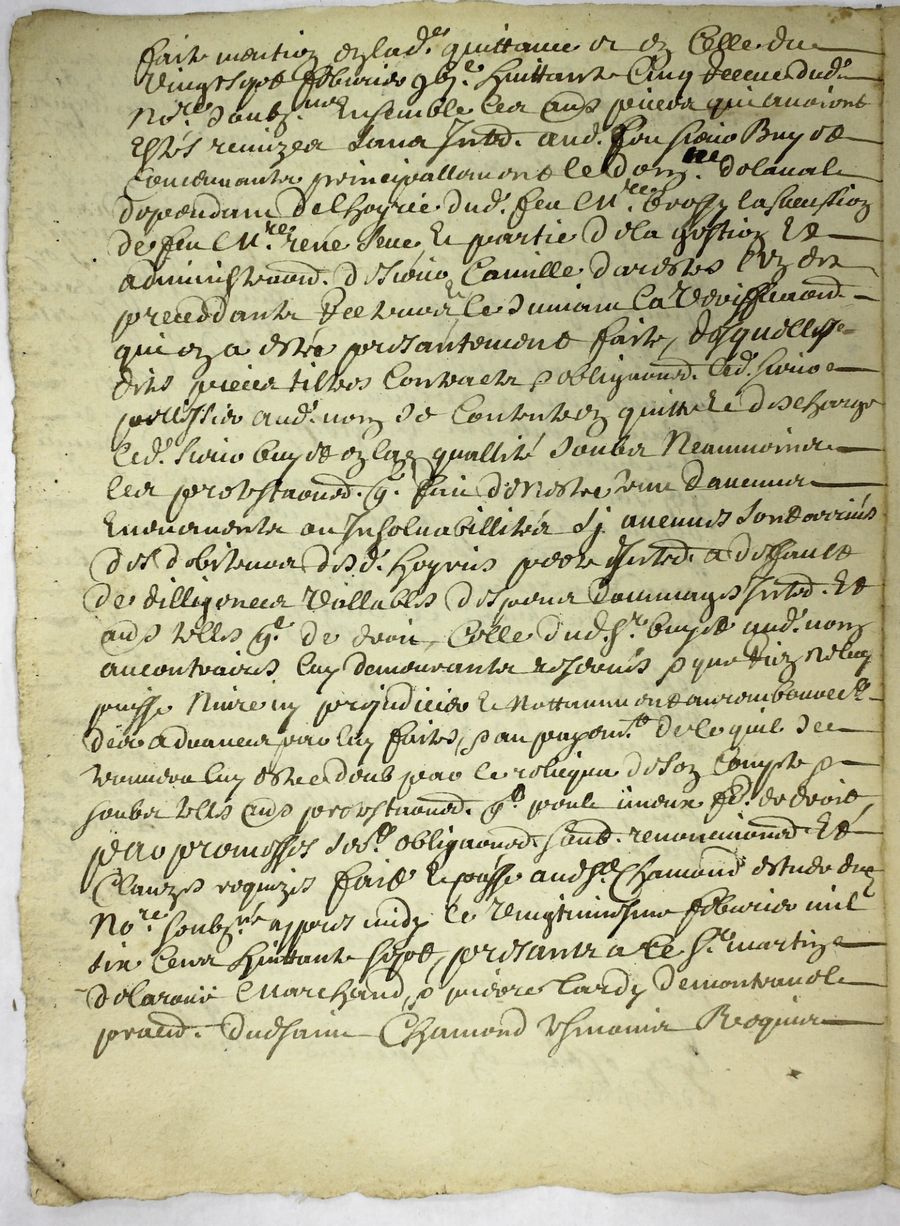 faite mention en lad.e quittance et en Celle du
vingt sept febvrier Huittante Cinq receue dud.
No.re soubz.né Ensemble les aus pieces qui avoient
Estés remizes dans aud. feu sieur Buyet
Concernants principallement le dom.ne de laval
dependant de lhoyrie dud. feu M.re la suession
de feu M.re rene et partie de la gestion Et
administraond. de sieur Camille
precedante Et le suivant la verifficaond.
qui en a esté presantement faite, desquelles
dits pieces tiltres Contracts & obligaonsd. led. sieur
pellissier aud. nom se Contente en quitte Et descharge
led. sieur buyet en lad. quallité soubz Neanmoings
les protestaonsd. q.l fait de nestre tenu daucuns
Evenements ou Insolvabillités sy aucunes sont arrivés
des debiteurs desd. hoyries a deffault
de dilligences vallables despens dommages Et
aus telles q.l de droit, Celle dud. s.r buyet aud. nom
au contraires luy demeurants reservés & que rien ne luy
puisse Nuire ny prejudicier Et Nottamment au remboursem.t
des advances par luy faites, & au payem.t de ce quil se
trouvera luy estre deub par le reliqua de son Compte &
soubz telles aus protestaonsd. q.l peult mieux f.e de droit,
par promesses obligaonsd. renonciaonsd. Et
Clauzes requizes fait Et passé aud s.t Chamond estude du
No.re soubz.né appres midy le vingtuniesme febvrier mil
six Cens Huittante sept, presants a Ce s.r martin
delaroue Marchand, & pierre tardy demontravel
pratid. dud saint Chamond tesmoins Requis